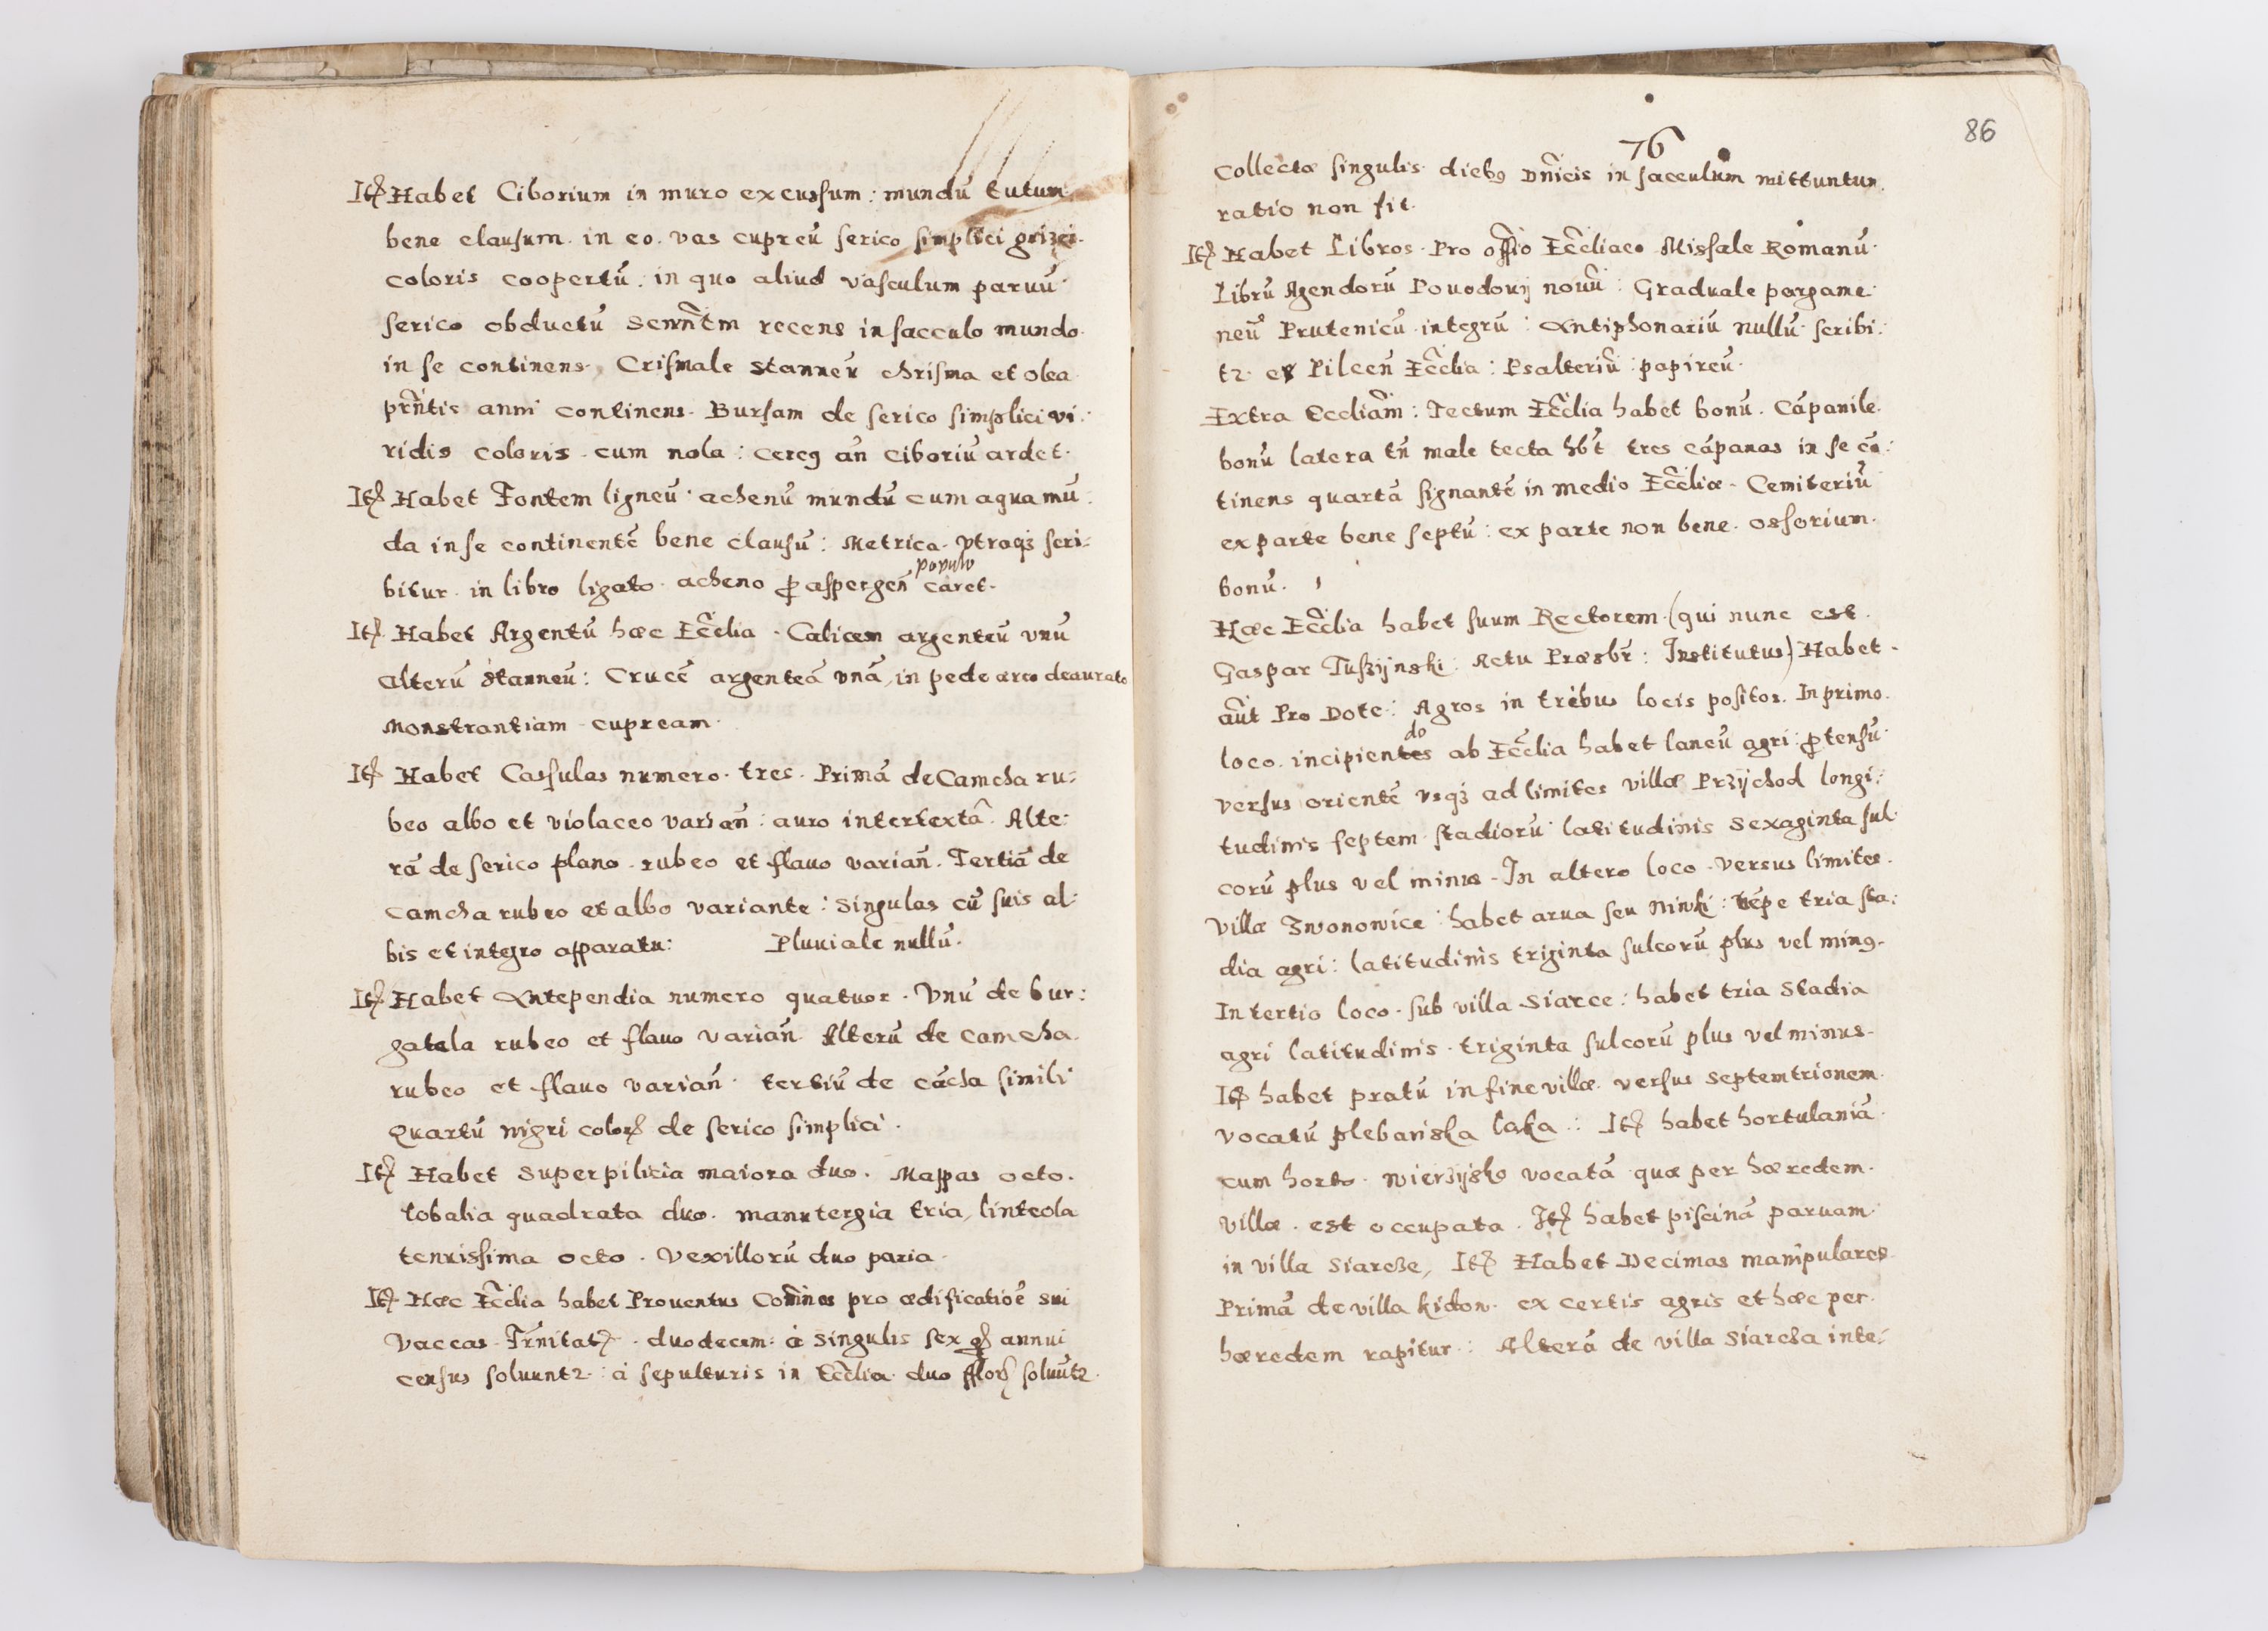 Itꝫ Habet Ciborium in muro excussum : mundū tutum
bene clausum. in eo. vas cupreū serico simplici grizei
coloris coopertū. in quo aliud vasculum paruū
serico obductū Sacrāmentm recens in sacculo mundo
in se continens. Crismale stanneū chrisma et olea
prñtis anni continens. Bursam de serico simplici vi:
ridis coloris. cum nola : cereꝰ añ ciboriū ardet.
Itꝫ Habet Fontem ligneū. achenū mundū cum aqua mū:
da in se continentē bene clausū : Metrica. vtraqꝫ scri:
populo
bitur in libro ligato. acheno ꝓ aspergeñ caret.
Itꝫ Habet Argentū hæc Eccĩlia. Calicem argenteū vnū
alterū stanneū : Crucē argenteā vnā, in pede æreo deaurato
Monstrantiam cupream.
Itꝫ Habet Cassulas numero. tres. Primā de Camcha ru:
beo albo et violaceo variañ : auro intertextā. Alte:
rā de serico plano. rubeo et flauo variañ. Tertiā de
camcha rubeo et albo variante : Singulas cū suis al:
bis et integro apparatu: Pluuiale nullū.
Itꝫ Habet Antependia numero quatuor. Vnū de bur:
gatela rubeo et flauo variañ Alterū de camcha
rubeo et flauo variañ. tertiū de cācha simili
Quartū nigri colorꝫ de serico simplici.
Itꝫ Habet superpilicia maiora duo. Mappas octo.
tobalia quadrata duo. manutergia tria, linteola
tenuissima octo. Vexillorū duo paria.
Itꝫ Hæc Eccĩlia habet Prouentus Com̃nes pro ædificatioē sui
Vaccas Trñitatꝫ. duodecem. à singulis sex gꝫ annui
census soluuntꝛ. à sepulturis in Eccĩlia duo fflorꝫ soluūtꝛ.
76
86
collectæ singulis diebꝰ Dñicis in sacculum mittuntur.
ratio non fit.
Itꝫ Habet Libros. Pro officĩo Eccĩliaco Missale Romanū.
Librū Agendorū Pouodouij nouū : Graduale pergame
neū Prutenicū integrū : Antiphonariū nullū scribi:
tꝛ. ex Pilceñ Eccĩlia : Psalteriū : papireū.
Extra Eccliam̃ : Tectum Eccĩlia habet bonū. Cāpanile
bonū latera tñ male tecta hb̃t tres cāpanas in se cō:
tinens quartā signantē in medio Eccĩliæ. Cemiteriū
ex parte bene septū : ex parte non bene. Osserium
bonū.
Hæc Eccĩlia habet suum Rectorem (qui nunc est
Gaspar Tuszijnski : Actu Præsbr̃ : Institutus) Habet
aũt Pro Dote : Agros in tribus locis positos. In primo
do
loco. incipientes ab Eccĩlia habet laneū agri : ꝓtensū
versus orientē vsqꝫ ad limites villæ Przijchod longi:
tudinis septem stadiorū latitudinis sexaginta sul
corū plus vel minus. In altero loco. versus limites
villæ Iwonowice : habet arua seu Niwki : tépe tria sta:
dia agri : latitudinis triginta sulcorū plus vel minꝰ.
In tertio loco. sub villa Siarce : habet tria stadia
agri latitudinis triginta sulcorū plus vel minus.
Itꝫ habet pratū in fine villæ versus Septemtrionem
vocatū plebanska laka : Itꝫ habet hortulaniā
cum horto. Wierzijsko vocatā quæ per hæredem
villæ est occupata. Itꝫ habet piscinā paruam
in villa Siarcze, Itꝫ Habet Decimas manipulares
Primā de villa kidow. ex certis agris et hæc per
hæredem rapitur : Alterā de villa Siarcza inte: